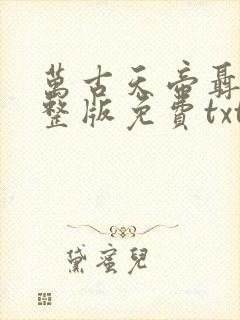 萬古天帝聶
整版免費txt
黛蜜兒